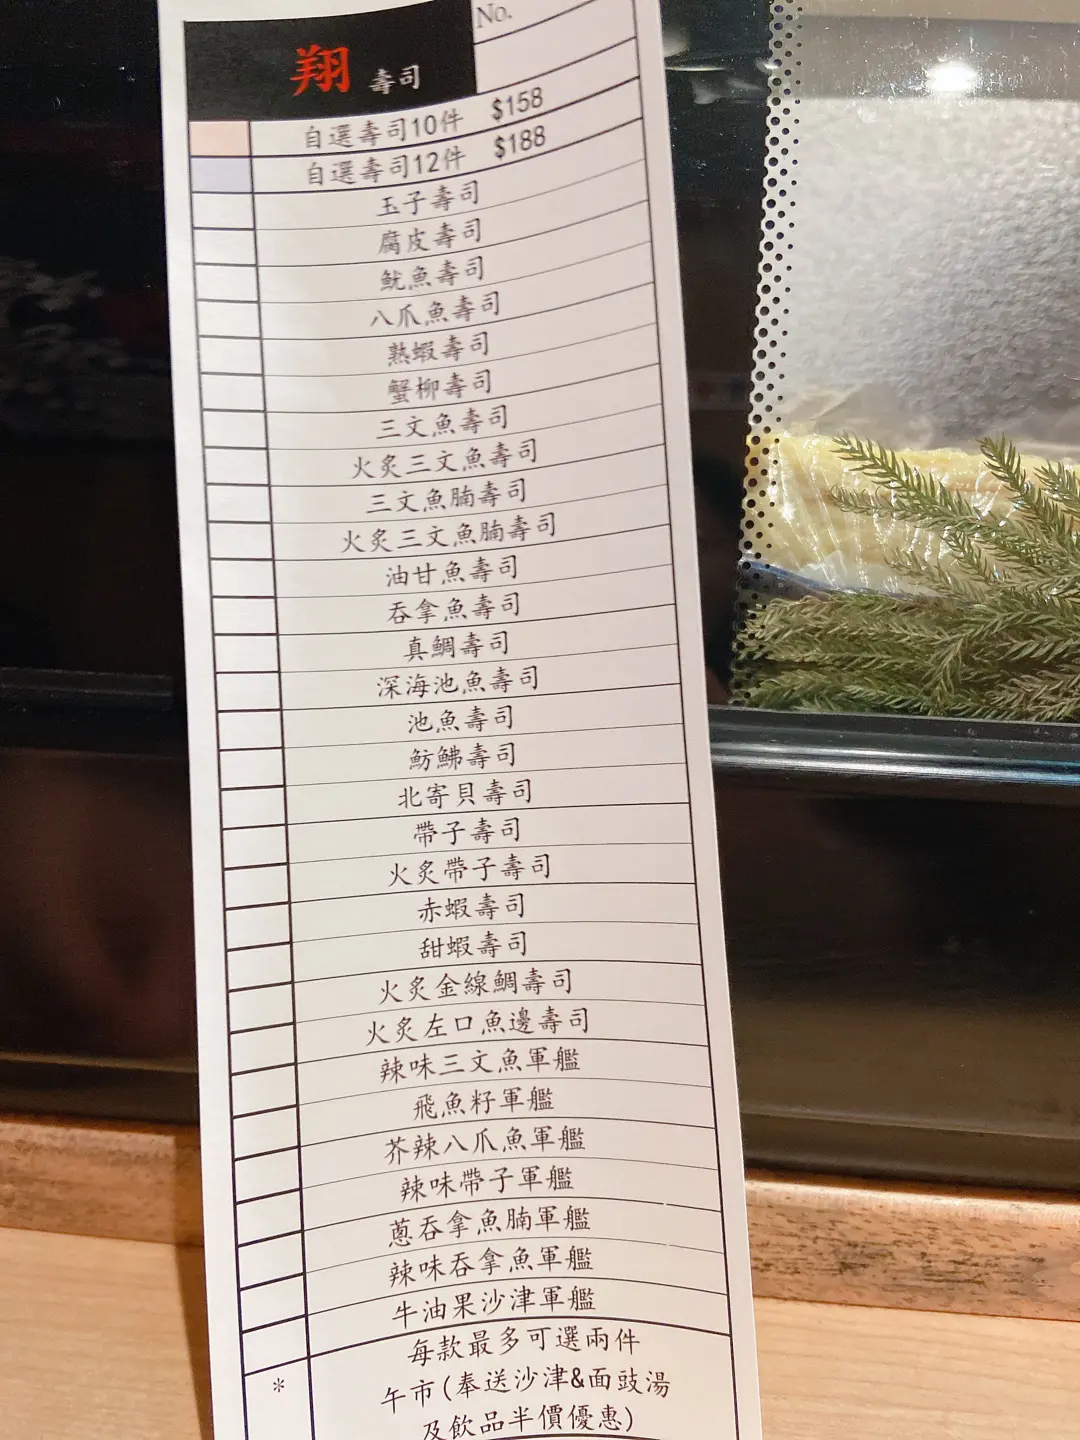 No.
翔 壽司
自選壽司10件 $158
自選壽司12件 $188
玉子壽司
腐皮壽司
魷魚壽司
八爪魚壽司
熟蝦壽司
蟹柳壽司
三文魚壽司
火炙三文魚壽司
三文魚腩壽司
火炙三文魚腩壽司
油甘魚壽司
吞拿魚壽司
真鯛壽司
深海池魚壽司
池魚壽司
魴鮄壽司
北寄貝壽司
帶子壽司
火炙帶子壽司
赤蝦壽司
甜蝦壽司
火炙金線鯛壽司
火炙左口魚邊壽司
辣味三文魚軍艦
飛魚籽軍艦
芥辣八爪魚軍艦
辣味帶子軍艦
蔥吞拿魚腩軍艦
辣味吞拿魚軍艦
牛油果沙津軍艦
每款最多可選兩件
* 午市(奉送沙津&面豉湯
及飲品半價優惠)